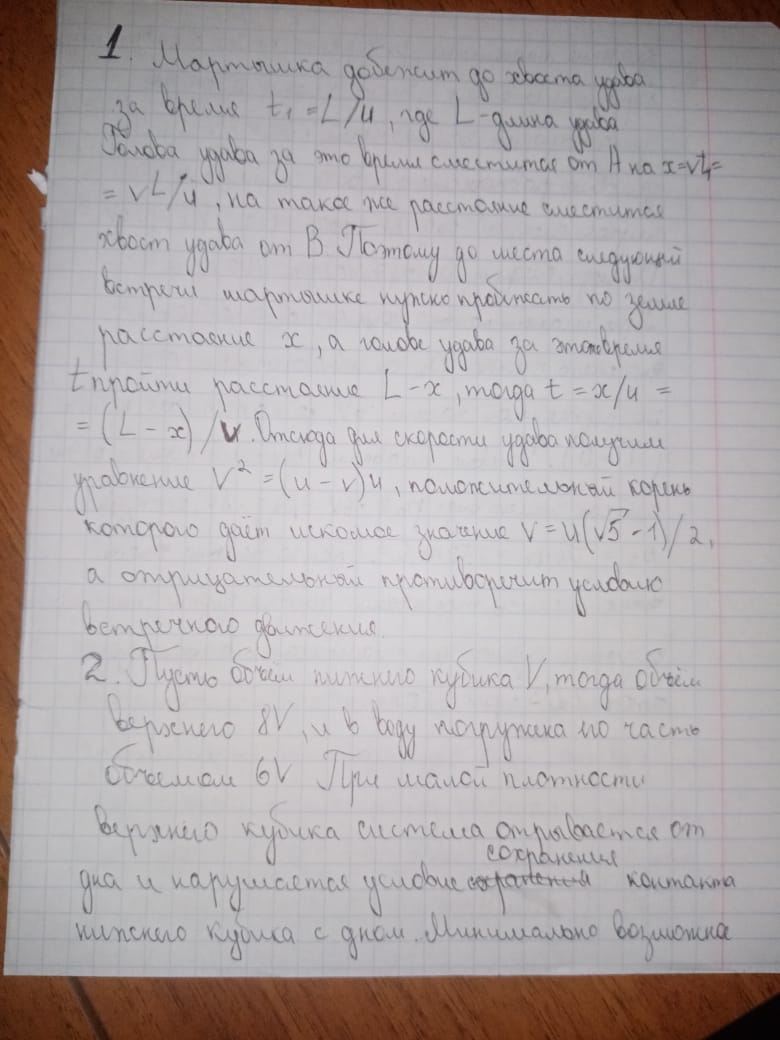 1. Мартышка добежит до хвоста удава
за время t₁ = L/u, где L-длина удава
Голова удава за это время сместится от А на x=vt₁=
= vL/u, на такое же расстояние сместится
хвост удава от В. Поэтому до места следующий
встречи мартышке нужно пробежать по земле
расстояние x, а голове удава за это время
t пройти расстояние L-x, тогда t = x/u =
= (L-x)/v. Отсюда для скорости удава получим
уравнение v² = (u-v)u, положительный корень
которого даёт искомое значение v = u(√5-1)/2,
а отрицательный противоречит условию
встречного движения.
2. Пусть объём нижнего кубика V, тогда объём
верхнего 8V, и в воду погружена его часть
объёмом 6V При малой плотности
верхнего кубика система отрывается от
дна и нарушается условие сохранения контакта
нижнего кубика с дном. Минимально возможна